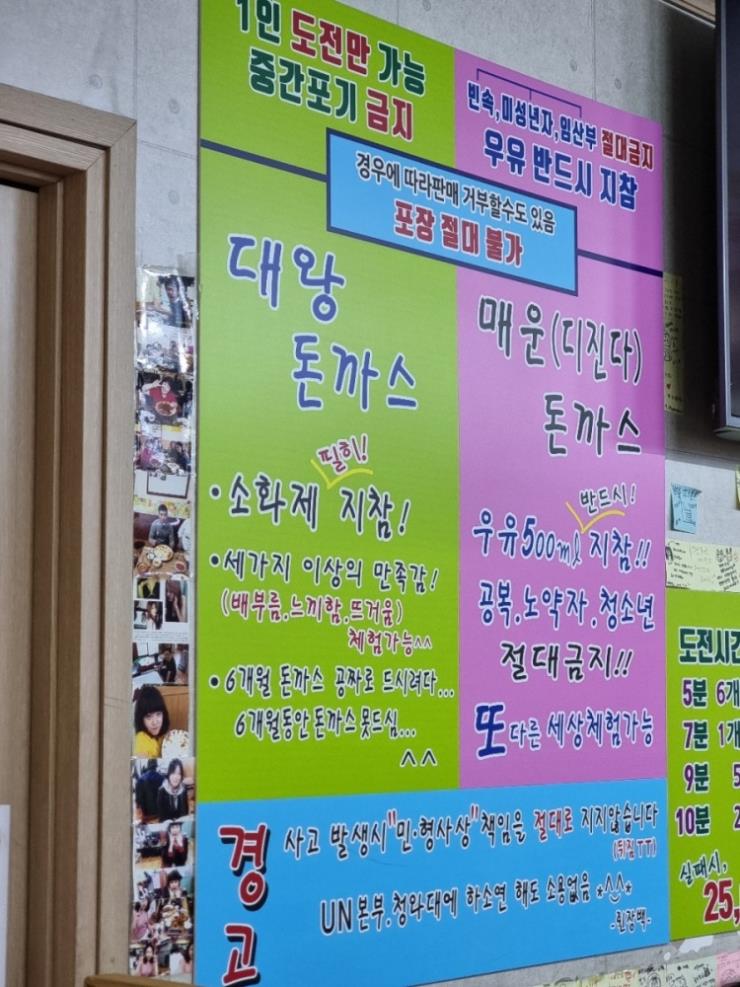 1인 도전만 가능
중간포기 금지
빈속,미성년자,임산부 절대금지
우유 반드시 지참
경우에 따라판매 거부할수도 있음
포장 절대 불가
대왕
돈까스
필히!
·소화제 지참!
·세가지 이상의 만족감!
(배부름.느끼함.뜨거움)
체험가능^^
·6개월 돈까스 공짜로 드시려다...
6개월동안 돈까스 못드심...
^^
매운(디진다)
돈까스
반드시!
우유500ml 지참!!
공복.노약자.청소년
절대금지!!
또다른 세상체험가능
경고
사고 발생시"민·형사상"책임을 절대로 지지않습니다
(뒤짐TT)
UN본부.청와대에 하소연 해도 소용없음 *^^*
-쥔장백-
도전시간
5분 6개
7분 1개
9분 5
10분 2
실패시,
25,